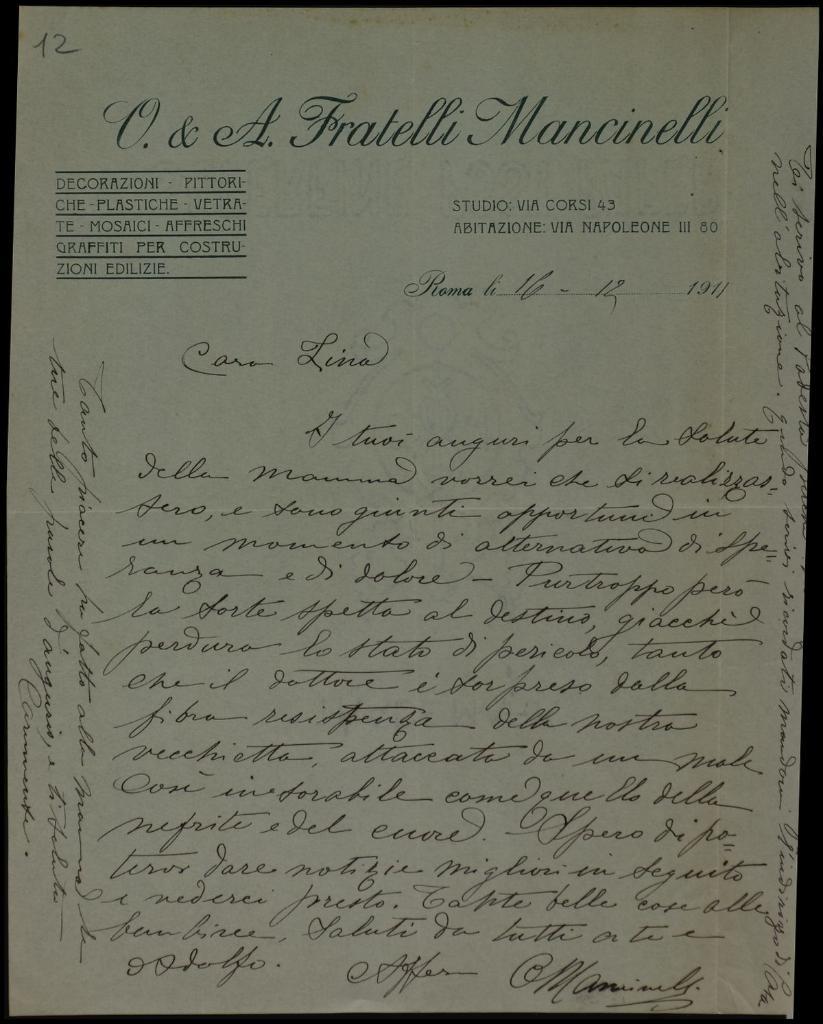 12
O. & A. Fratelli Mancinelli
DECORAZIONI - PITTORI-
CHE - PLASTICHE - VETRA-
TE - MOSAICI - AFFRESCHI
GRAFFITI PER COSTRU-
ZIONI EDILIZIE.
STUDIO: VIA CORSI 43
ABITAZIONE: VIA NAPOLEONE III 80
Roma li 16 - 12 1911
Cara Lina
I tuoi auguri per la salute
della mamma vorrei che si realizzas=
sero, e sono giunti opportuni in
un momento di alternativa di spe=
ranza e di dolore - Purtroppo però
la sorte spetta al destino, giacchè
perdura lo stato di pericolo, tanto
che il dottore è sorpreso dalla
fibra resistenza della nostra
vecchietta, attaccata da un male
così inesorabile come quello della
nefrite e del cuore. - Spero di po=
tervi dare notizie migliori in seguito
e vederci presto. Tante belle cose alle
bambine, saluti da tutti a te e
Adolfo.
Affen OMancinelli
Tanto piacere ha fatto alla mamma le
tue belle parole d'augurio, e ti saluta
Ci scrivo al
nell'abitazione. quando scrivi ricordati mandarmi l'indirizzo di